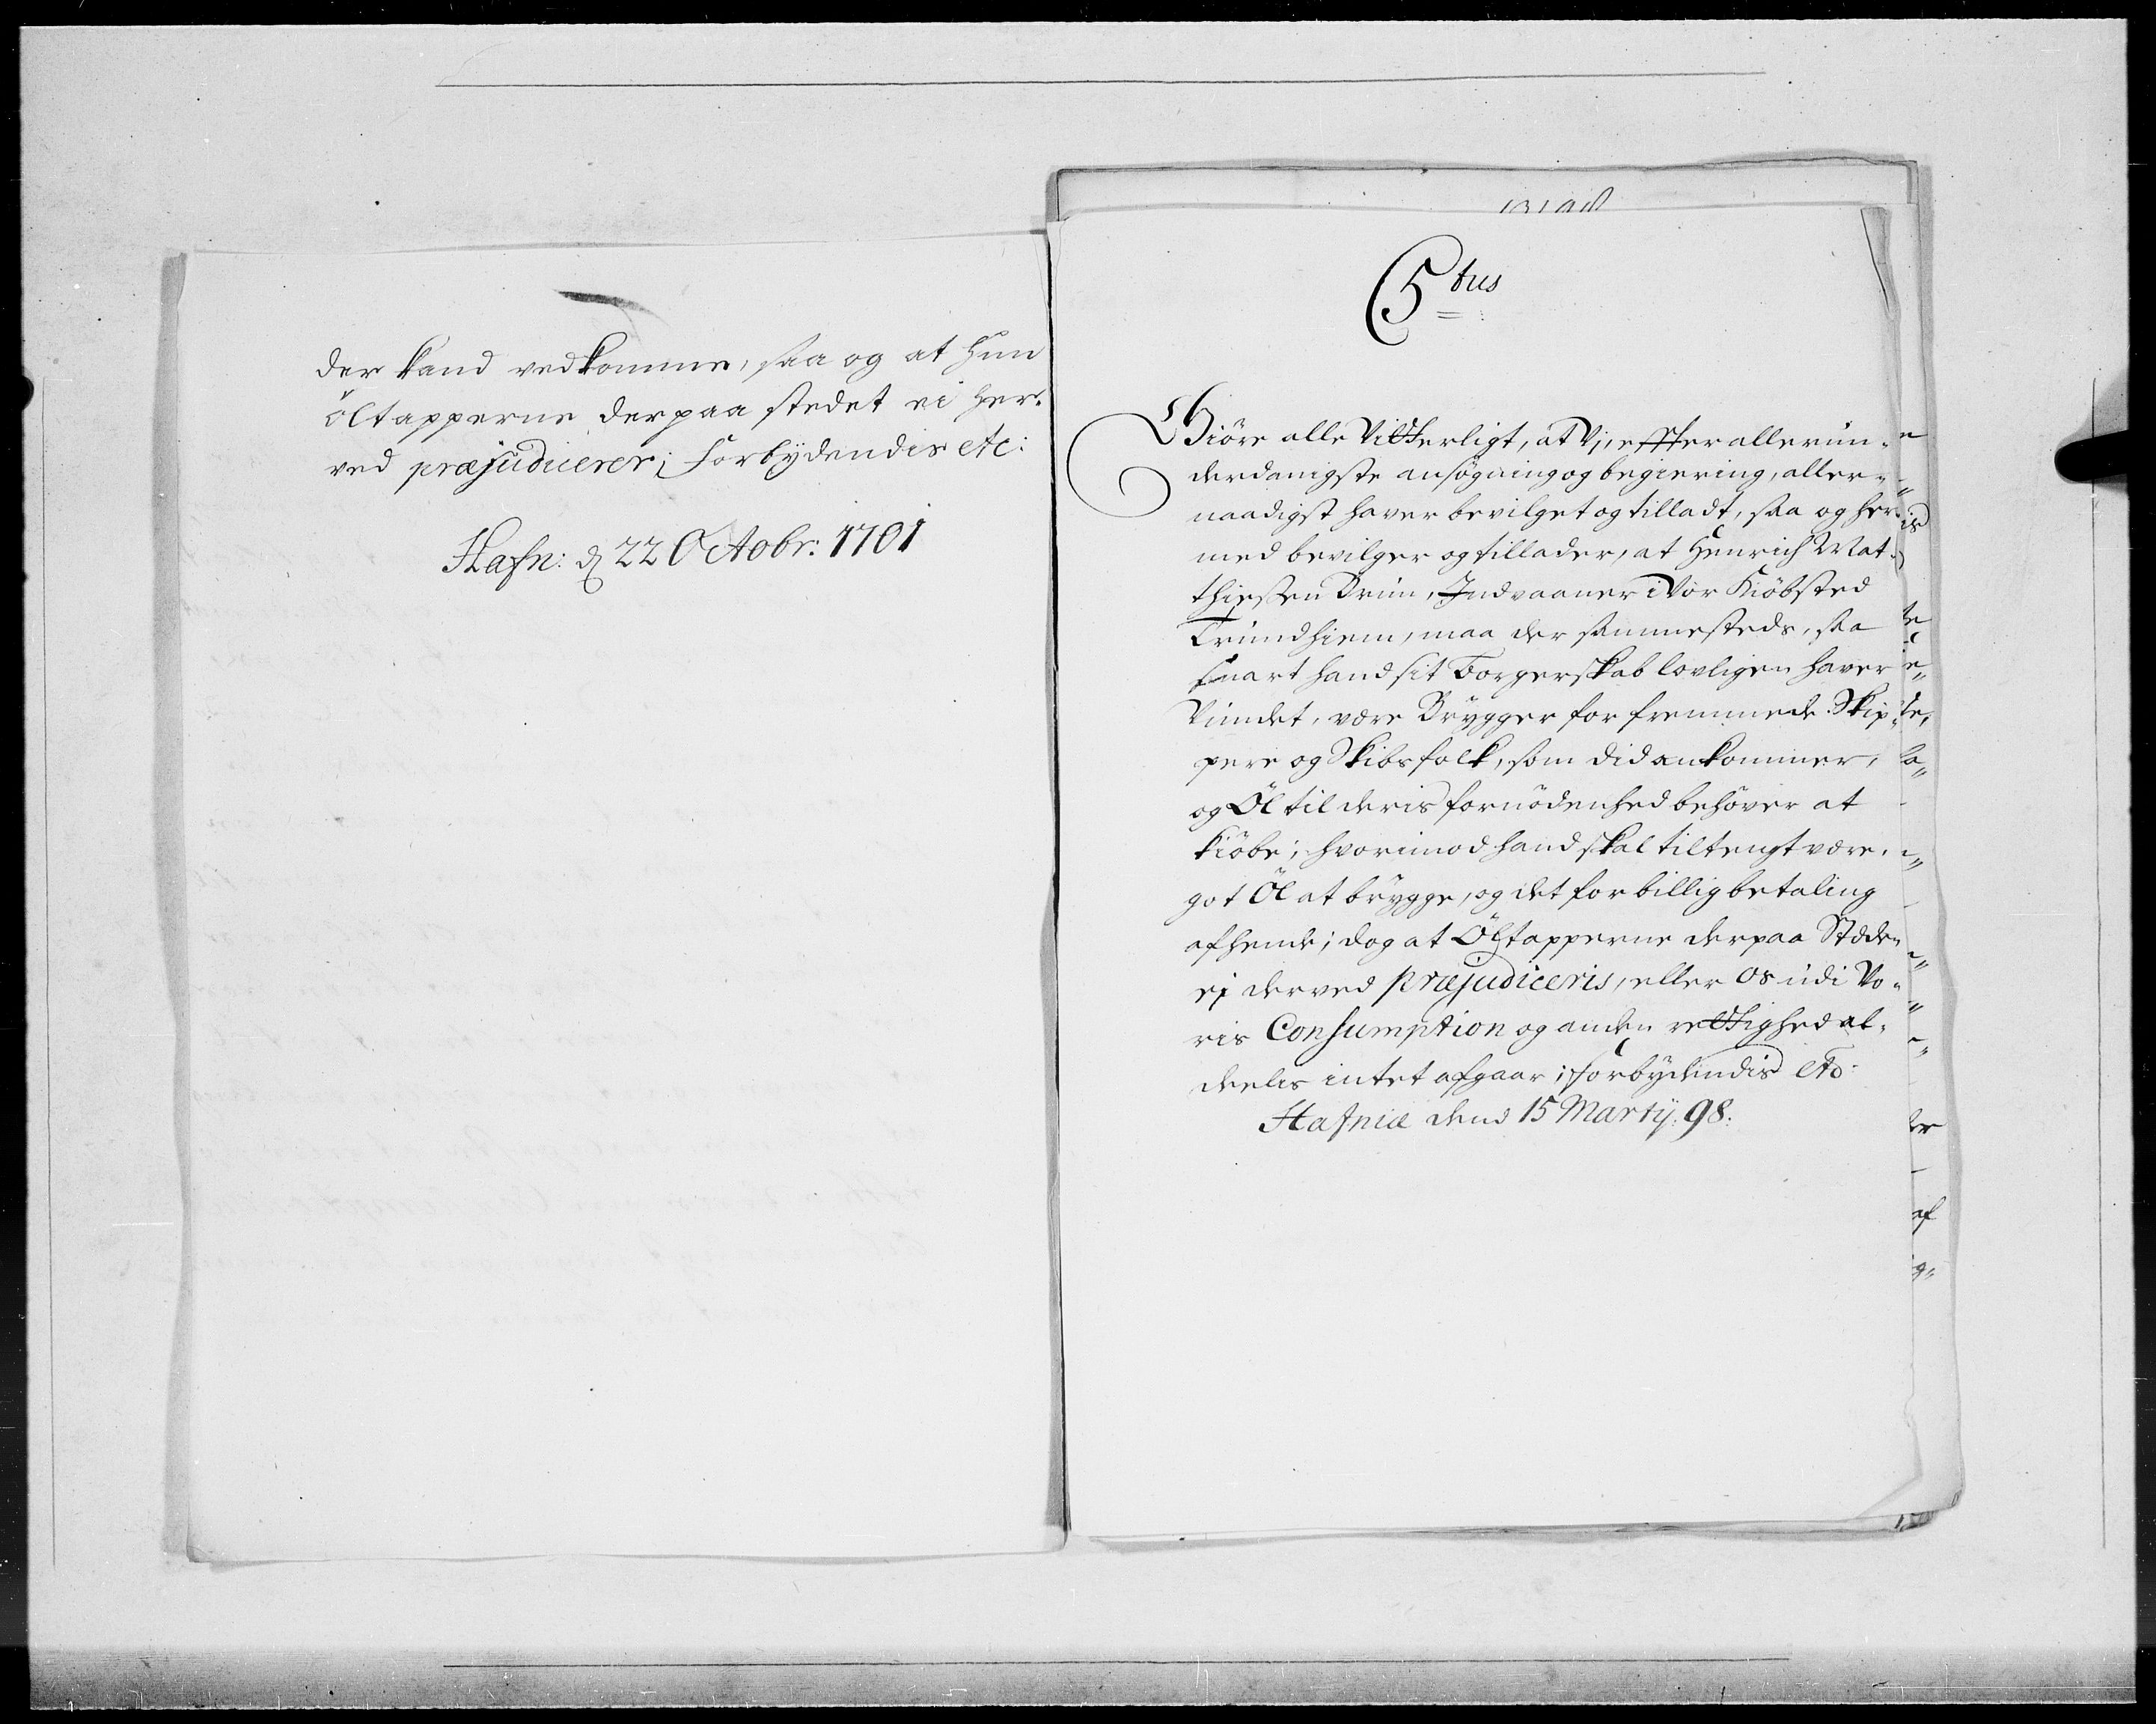 der kand vedkomme, saa og at hun
öltapperne derpaa stedet ei her-
ved præjudicerer; forbÿdendis etc:
Hafn: d 22 Octobr: 1701
C5tus
Giöre alle Vitterligt, at Vi, effter allerun-
derdanigste ansögning og begiering, aller-
naadigst haver bevilget og tilladt, saa og her-
med bevilger og tillader, at Henrich Mat-
thiessen Bruun, Indvaaner i Vor Kiöbsted
Trundhiem, maa der sammesteds, saa
snart hand sit Borgerskab lovligen haver
Vundet, være Brÿgger for fremmede Skip-
pere og Skibsfolk, som did ankommer,
og Öl til deris fornödenhed behöver at
kiöbe; hvorimod hand skal tiltengt være,
got Öl at brÿgge, og det for billig betaling
afhende; dog at Öltapperne derpaa Steden
ej derved præjudiceris, eller os udi Vo-
ris Consumption og anden rettighed al-
deelis intet afgaar; forbÿdendis etc:
Hafniæ dend 15 Martÿ: 98: